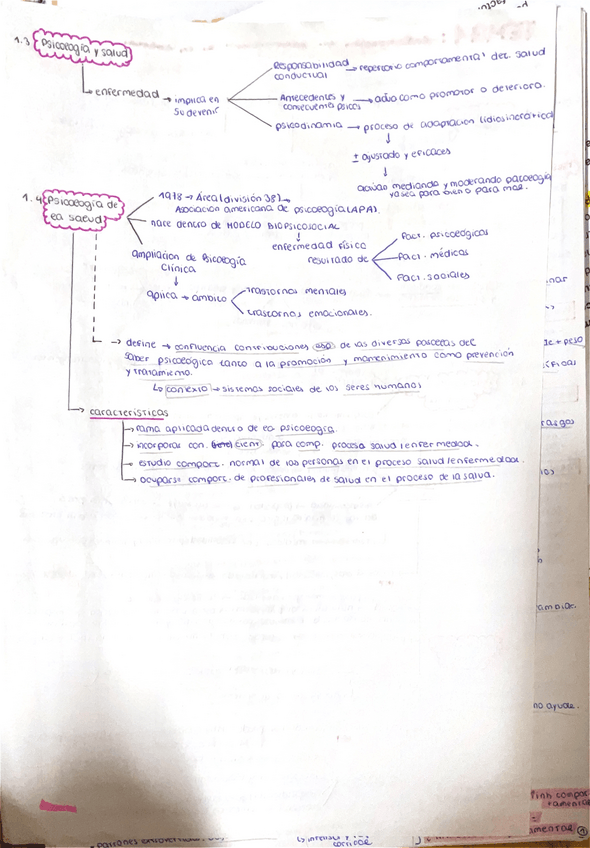 1.3 Psicología y salud
enfermedad → implica en su devenir
Responsabilidad conductual → repertorio comportamental det. salud
Antecedentes y consecuentes psicos → actúa como promotor o deteriora.
psicodinamia → proceso de adaptación (idiosincrática)
↓
± ajustado y eficaces
↓
actúan mediando y moderando patología
ya sea para bien o para mal.
1.4 Psicología de la salud
1978 → Área (división 38) →
Asociación americana de psicología (APA).
nace dentro de MODELO BIOPSICOSOCIAL
↓
enfermedad física
resultado de
Fact. psicológicos
Fact. médicas
Fact. sociales
ampliación de Psicología
Clínica
↓
aplica → ámbito
trastornos mentales
trastornos emocionales.
→ define → confluencia contribuciones de las diversas parcelas del
saber psicológico tanto a la promoción y mantenimiento como prevención
y tratamiento.
↳ contexto → sistemas sociales de los seres humanos
→ características
→ rama aplicada dentro de la psicología.
→ incorporar con. cient. para comp. proceso salud/enfermedad.
→ estudio comport. normal de las personas en el proceso salud/enfermedad.
→ ocuparse comport. de profesionales de salud en el proceso de la salud.
+ peso
rasgos
no ayude.